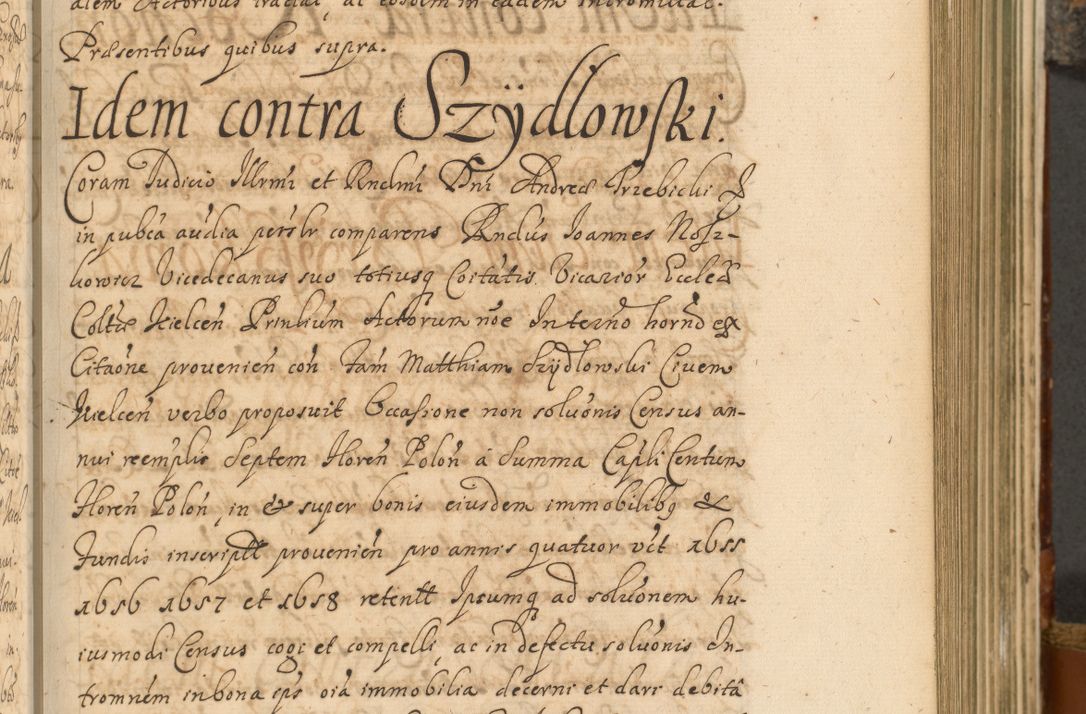 alem Actoribus tradat, ac eosdem in eadem intromittat.
Præsentibus quibus supra.
Idem contra Szÿdlowski.
Coram Judicio Illrmi et Rndmi Dni Andreæ Trzebicki
in pubca audia persolr comparens Rndus Joannes Nosz-
kowicz Vicedecanus suo totiusq Coitatis Vicarior Eccleæ
Coltæ Kielcen Prinlium Actorum noe In termo horno ex
Citaone provenien con fam Matthiam Szÿdlowski Civem
Kielcen verbo proposuit Occasione non soluonis Census an-
nui reemplis Septem floren Polon a Summa Capli Centum
floren Polon in & super bonis eiusdem immobilibq &
fundis inscriptt provenien pro annis quatuor vct 1655
1656 1657 et 1658 retentt Ipsumq ad soluonem hu-
iusmodi Census cogi et compelli, ac in defectu soluonis In-
tromnem in bona eps oia immobilia decerni et dari debita